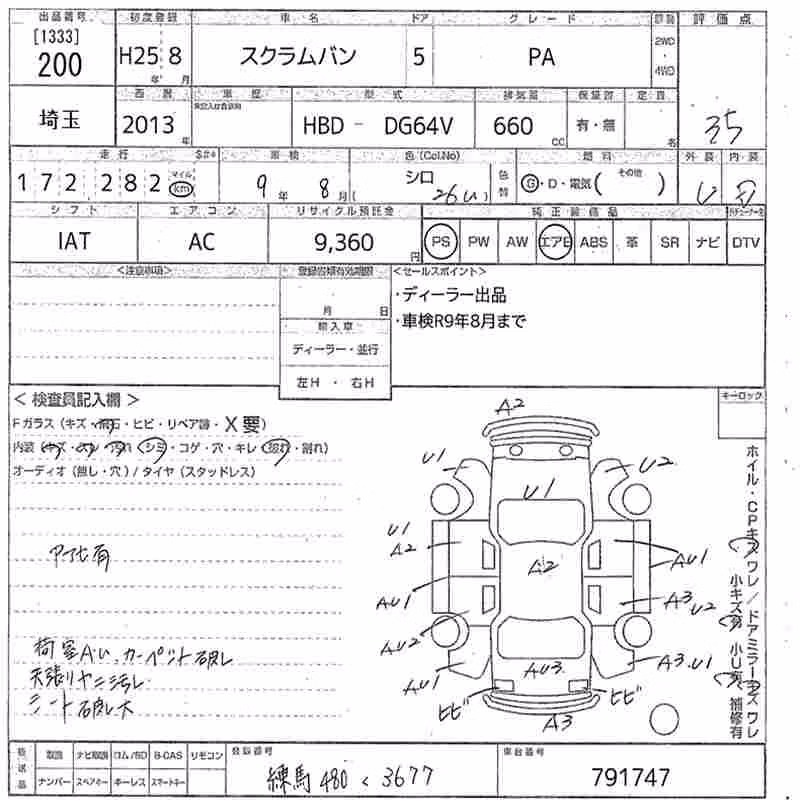 出品番号 初度登録 車名 ドア グレード 評価点
[1333]
200 H25 8 スクラムバン 5 PA 2WD・4WD
年 月
西暦 車歴 型式 排気量 保証書 定員
埼玉 2013 年 HBD - DG64V 660 cc 有・無 名 35
走行 車検 色(Col.No) 燃料 外装 内装
172282 マイル km 9年 8月 シロ 26U 色替 G・D・電気( その他 )
シフト エアコン リサイクル預託金 純正装備品
IAT AC 9,360 円 PS PW AW エアB ABS 革 SR ナビ DTV
<注意事項> <セールスポイント>
月 日
輸入車
ディーラー・並行
左H ・ 右H
・ディーラー出品
・車検R9年8月まで
キーロック
< 検査員記入欄 >
Fガラス (キズ・飛石・ヒビ・リペア跡・X要)
内装 (キズ・汚れ・シミ・コゲ・穴・キレ・破れ・割れ)
オーディオ (無し・穴) / タイヤ (スタッドレス)
アフセ有
荷室AU.カーペット破レ
天張りヤニ汚レ
シート破レ大
A2
U1 U2
U1
U1
A2 A2 AU1
AU1 A3 U2
AU2
AU1 AU3 A3.U1
ヒビ ヒビ
A3
ホイル・CPキズワレ/ドアミラーキズワレ
小キズ有 小U有 補修有
後送品 取説 ナビ取説 ロム/SD B-CAS リモコン
ナンバー スペアキー キーレス スマートキー
登録番号 車台番号
練馬 480 く 3677 791747